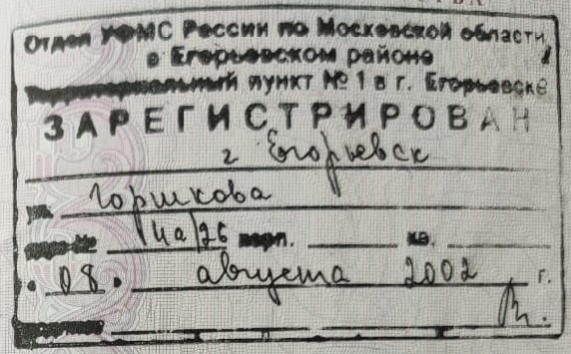 Отдел УФМС России по Московской области
в Егорьевском районе
Территориальный пункт № 1 в г. Егорьевске
ЗАРЕГИСТРИРОВАН
г Егорьевск
ул. Горшкова
14а/26 корп. кв.
"08" августа 2002 г.